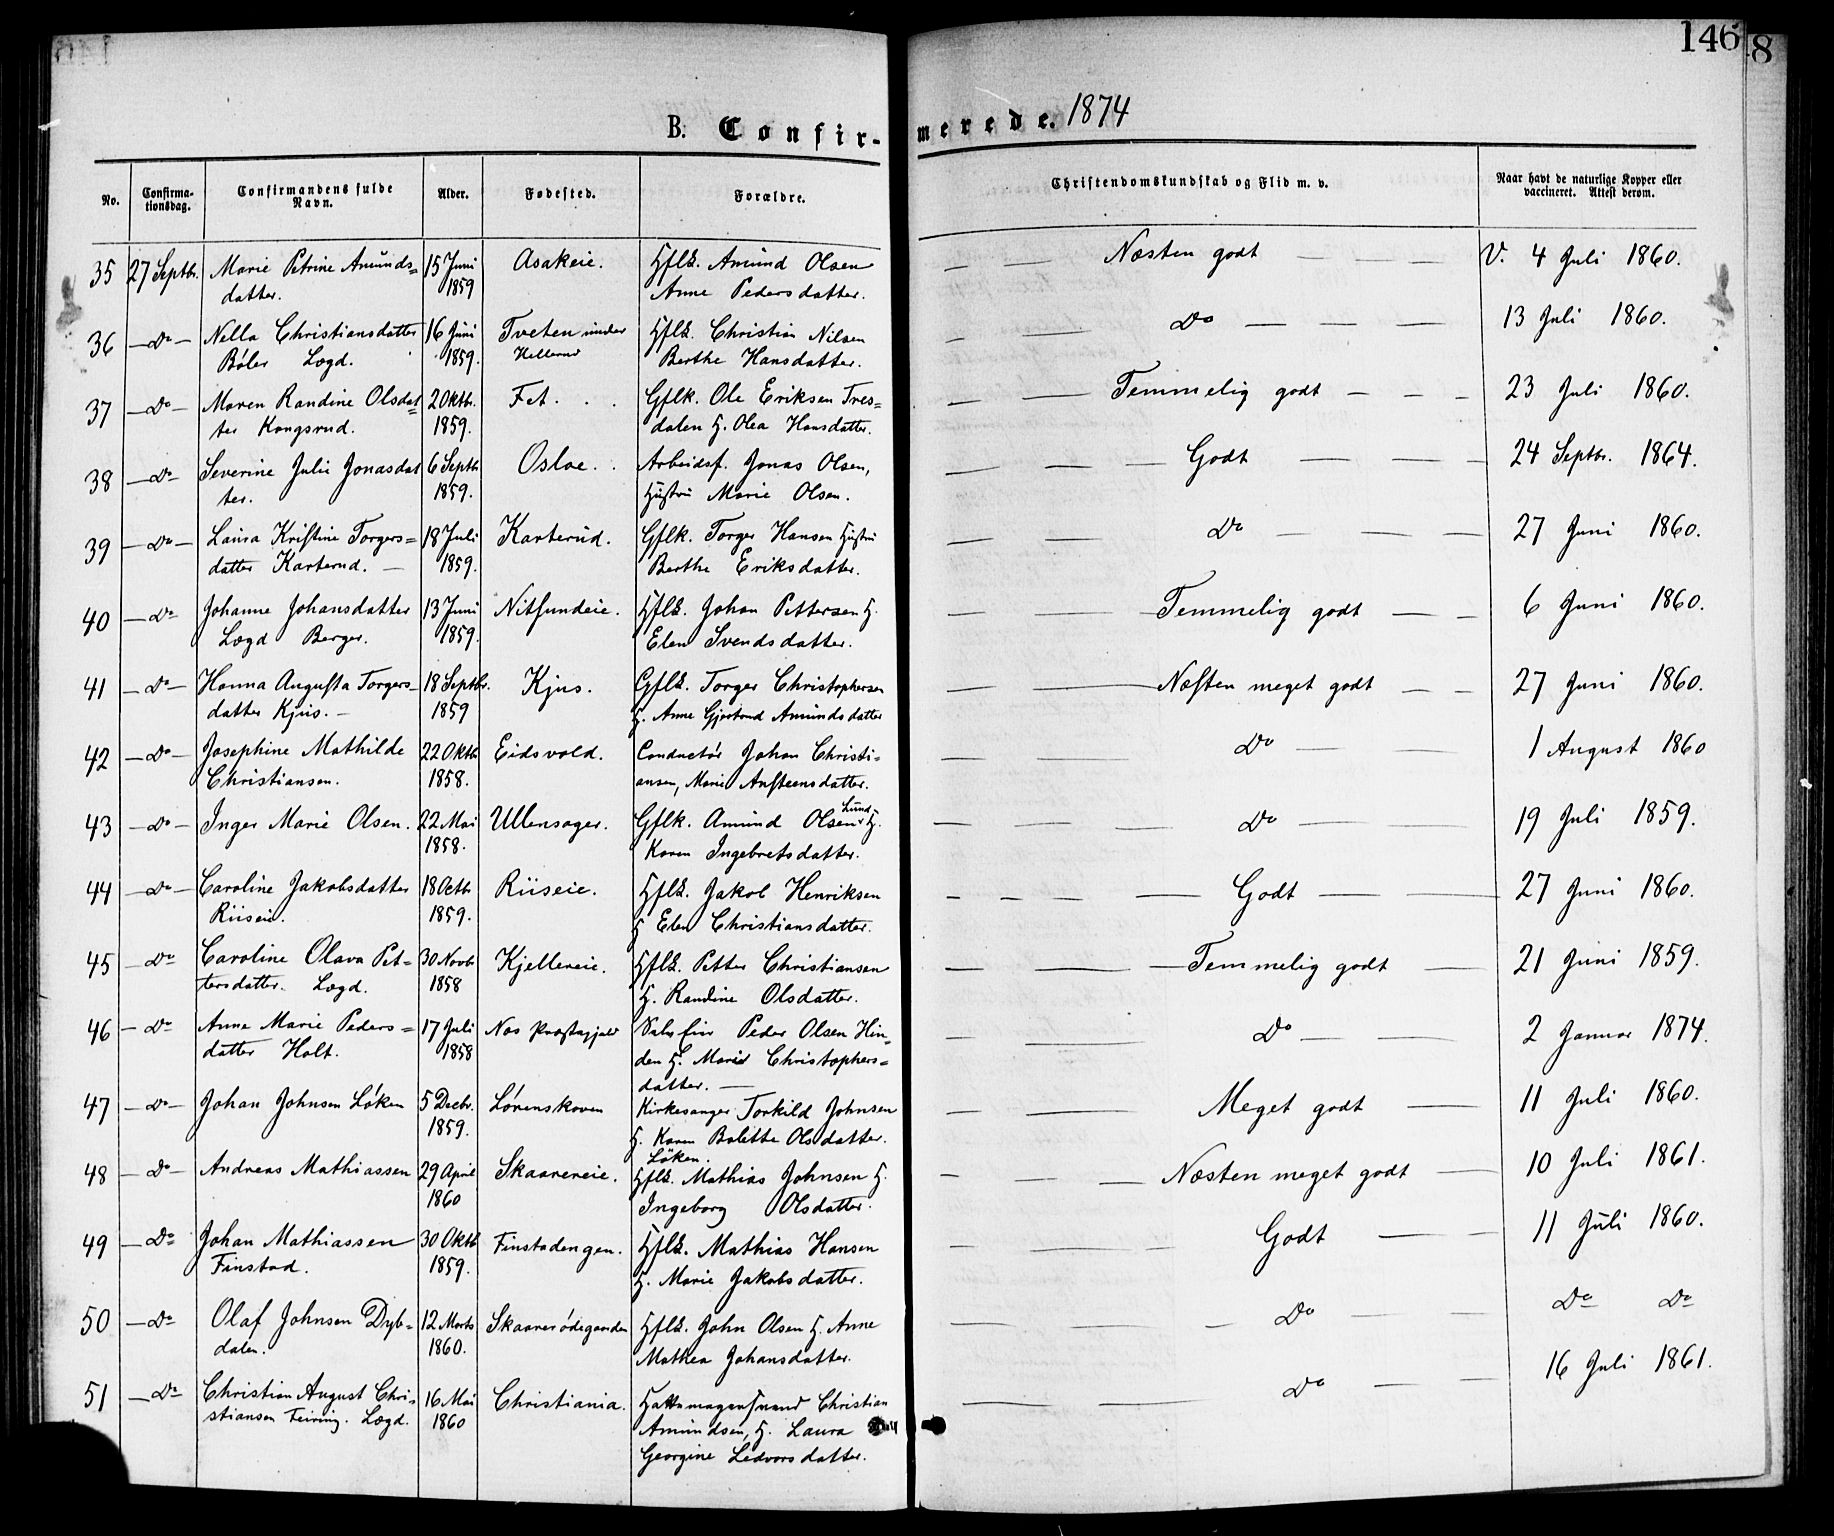 146
8
B. Confir-
merede. 1874
No.
Confirma-
tionsdag.
Confirmandens fulde
Navn.
Alder.
Fødested.
Forældre.
Christendomskundskab og Flid m. v.
Naar havt de naturlige Kopper eller
vaccineret. Attest derom.
35 27 Septbr. Marie Petrine Amunds= 15 Juni Asakeie. Hflk. Amund Olsen — — Næsten godt — — — V. 4 Juli 1860.
datter. 1859 Anne Pedersdatter.
36 — Do — Nella Christiansdatter 16 Juni Tveten under Hflk. Christian Nilsen — — Do — — — 13 Juli 1860.
Bøler Lægd. 1859. Hellerud Berthe Hansdatter.
37 — Do — Maren Randine Olsdat= 2 Oktb. Fet. . . Gflk. Ole Eriksen Tres= — — Temmelig godt — — — 23 Juli 1860.
ter Kongsrud. 1859. dalen H. Olea Hansdatter.
38 — Do — Severine Julie Jonasdat 6 Septb Osloe. . Arbeidsf. Jonas Olsen, — — — Godt — — — 24 Septbr. 1864.
ter. 1859. Hustru Marie Olsen.
39 — Do — Laura Kristine Torgers= 18 Juli Karterud. Gflk. Torger Hansen Hustru — — Do — — — 27 Juni 1860.
datter Karterud. — 1859. Berthe Eriksdatter.
40 — Do Johanne Johansdatter 13 Juni Nitfundeie. Hflk. Johan Pettersen H. — — Temmelig godt — — 6 Juni 1860.
Lægd Berger. 1859. Elen Svendsdatter.
41 — Do — Hanna Augusta Torgers- 18 Septbr. Kjus. Gflk. Torger Christophersen — — Næsten meget godt — — 27 Juni 1860.
datter Kjus. — 1859 H. Anne Gjertrud Amundsdatter
42 — Do — Josephine Mathilde 22 Oktb Eidsvold. Conductør Johan Christi= — — Do — — 1 August 1860
Christiansen. 1858. ansen, Marie Ansteensdatter.
43 — Do — Inger Marie Olsen. 22 Mai Ullensager. Gflk. Amund Olsen Lund H. — — — Do — — 19 Juli 1859.
1858. Karen Ingebretsdatter.
44 — Do — Caroline Jakobsdatter 18 Octb. Riiseie. Hflk. Jakob Henriksen — — — — Godt — 27 Juni 1860.
Riiseie. 1859. H Elen Christiansdatter.
45 — Do Caroline Olava Pet= 30 Novb Kjellereie. Hflk. Petter Christiansen — — — Temmelig godt — 21 Juni 1859.
tersdatter. Lægd. 1858 H. Randine Olsdatter.
46 — Do Anne Marie Peders= 17 Juli Nes Præstegjeld Peder Olsen Hin= — — Do — — 2 Januar 1874.
datter Holt. 1858 den H. Marie Christophers=
datter. —
47 — Do — Johan Johnsen Løken 5 Decbr. Lørenskoven Kirkesanger Torkild Johnsen — — Meget godt — 11 Juli 1860.
1859. H. Karen Bolette Olsdatter.
Løken.
48 — Do — Andreas Mathiassen 29 April Skaarereie. Hflk. Mathias Johnsen H. — — — Næsten meget godt — 10 Juli 1861.
1860 Ingeborg Olsdatter.
49 — Do Johan Mathiassen 30 Oktb Finstadengen. Hflk. Mathias Hansen — — Godt — — 11 Juli 1860.
Finstad. 1859. H. Marie Jakobsdatter.
50 — Do Olaf Johnsen Dyb= 12 Marts Skaarerødegaarden Hflk. John Olsen H. Anne — Do — — Do Do
dalen. 1860. Mathea Johansdatter.
51 — Do Christian August Chri= 16 Mai Christiania. Christian — — Do — — 16 Juli 1861.
stiansen Feiring. Lægd. 1860 Amundsen, H. Laura
Georgine Ledvorsdatter.